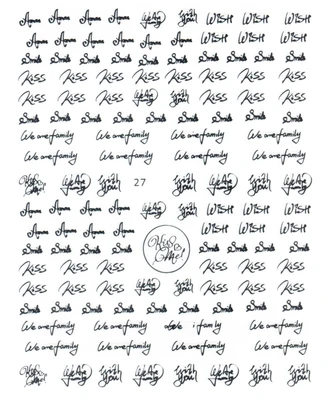 Amore Amore Amore We Are family With You! Wish Wish Wish
Amore Amore Amore Amore Amore Wish Wish Wish
Smile Smile Smile Smile Smile Smile Smile Smile Smile
Kiss Kiss Kiss Kiss Kiss Kiss Kiss Kiss
Kiss Kiss Kiss We Are family With You! Kiss Kiss Kiss
Smile Smile Smile Smile Smile Smile Smile Smile Smile
We are family We are family We are family We are family
We are family We are family We are family We are family
Kiss Me! We Are family With You! 27 With You! We Are family With You! We Are family
Amore Amore Amore We Are family With You! Wish Wish Wish
Amore Amore Amore Wish Wish Wish
Kiss Me!
Smile Smile Smile Smile Smile Smile
Kiss Kiss Kiss Kiss Kiss Kiss
Kiss Kiss Kiss We Are family With You! Kiss Kiss Kiss
Smile Smile Smile Smile Smile Smile Smile Smile Smile
We are family We are family family We are family
We are family We are family We are family We are family
Kiss Me! We Are family With You! We Are family With You! With You! We Are family With You! We Are family